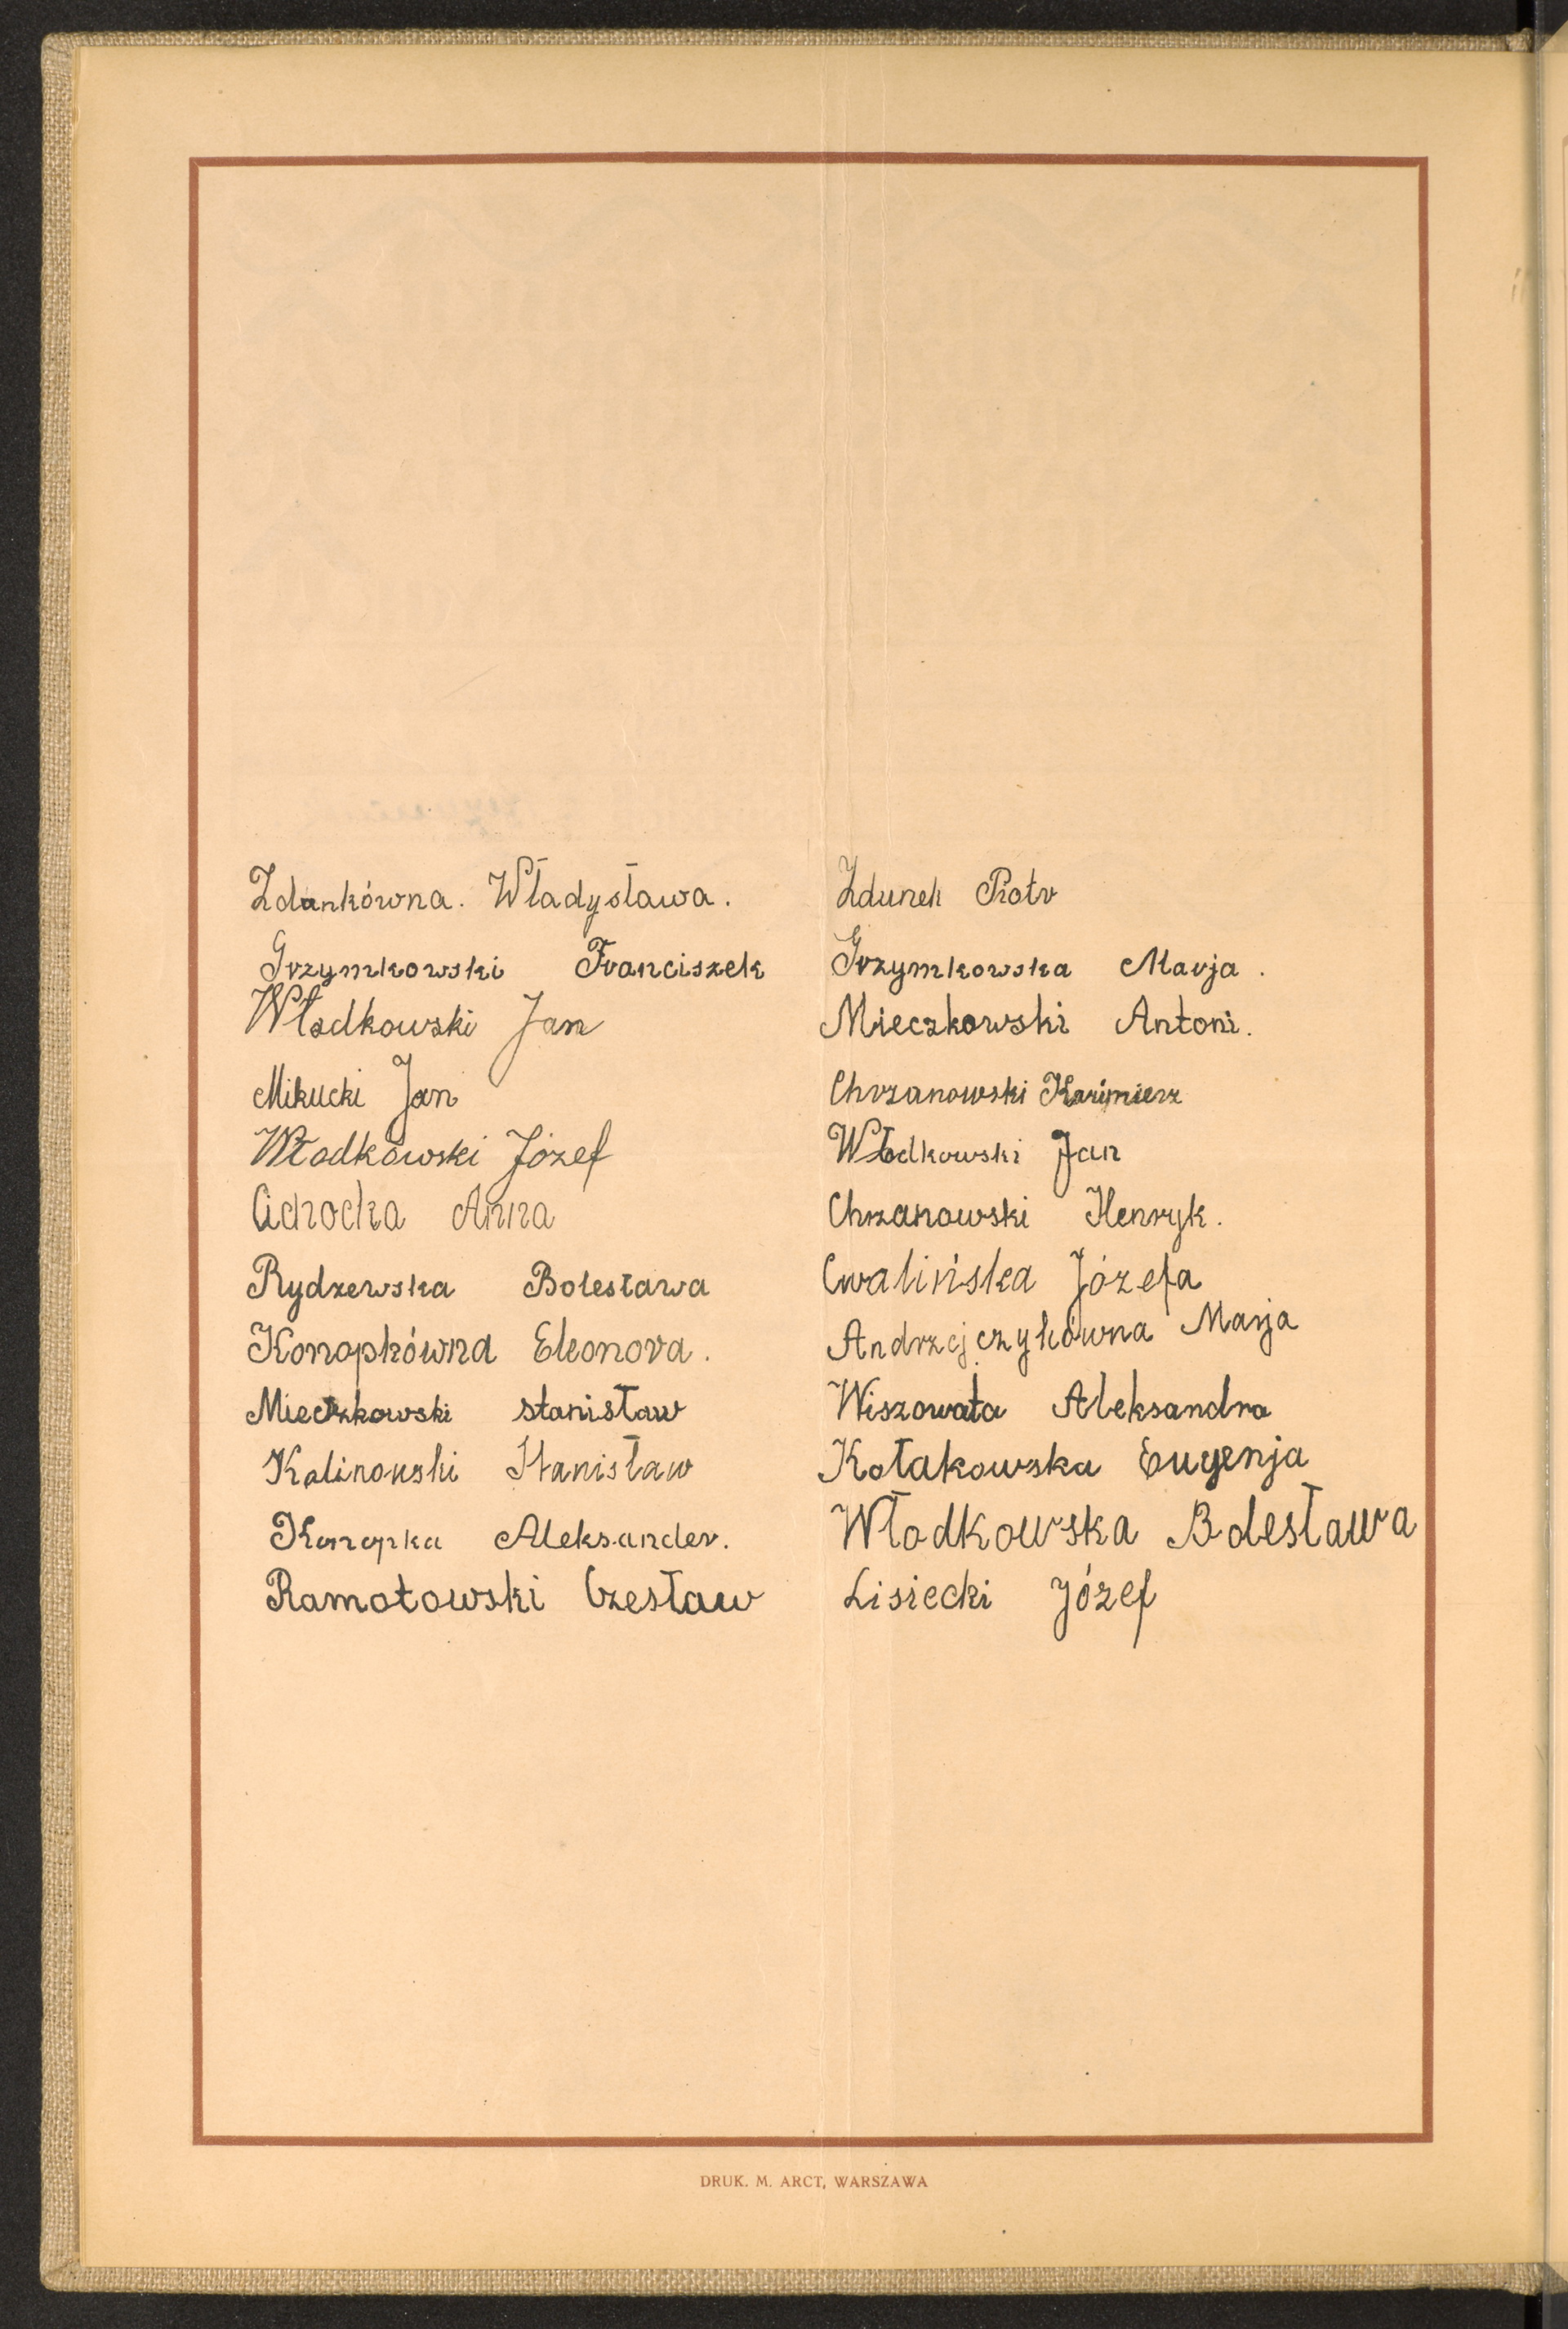 Zdunkówna. Władysława.
Grzymkowski Franciszek
Włodkowski Jan
Mikucki Jan
Włodkowski Józef
Cichocka Anna
Rydzewska Bolesława
Konopkówna Eleonora.
Mieczkowski Stanisław
Kalinowski Stanisław
Konopka Aleksander.
Ramotowski Czesław
Zdunek Piotr
Grzymkowska Marja.
Mieczkowski Antoni.
Chrzanowski Kazimierz
Włodkowski Jan
Chrzanowski Henryk.
Cwalińska Józefa
Andrzejczykówna Marja
Wiszowata Aleksandra
Kołakowska Eugenja
Włodkowska Bolesława
Lisiecki Józef
DRUK. M. ARCT, WARSZAWA